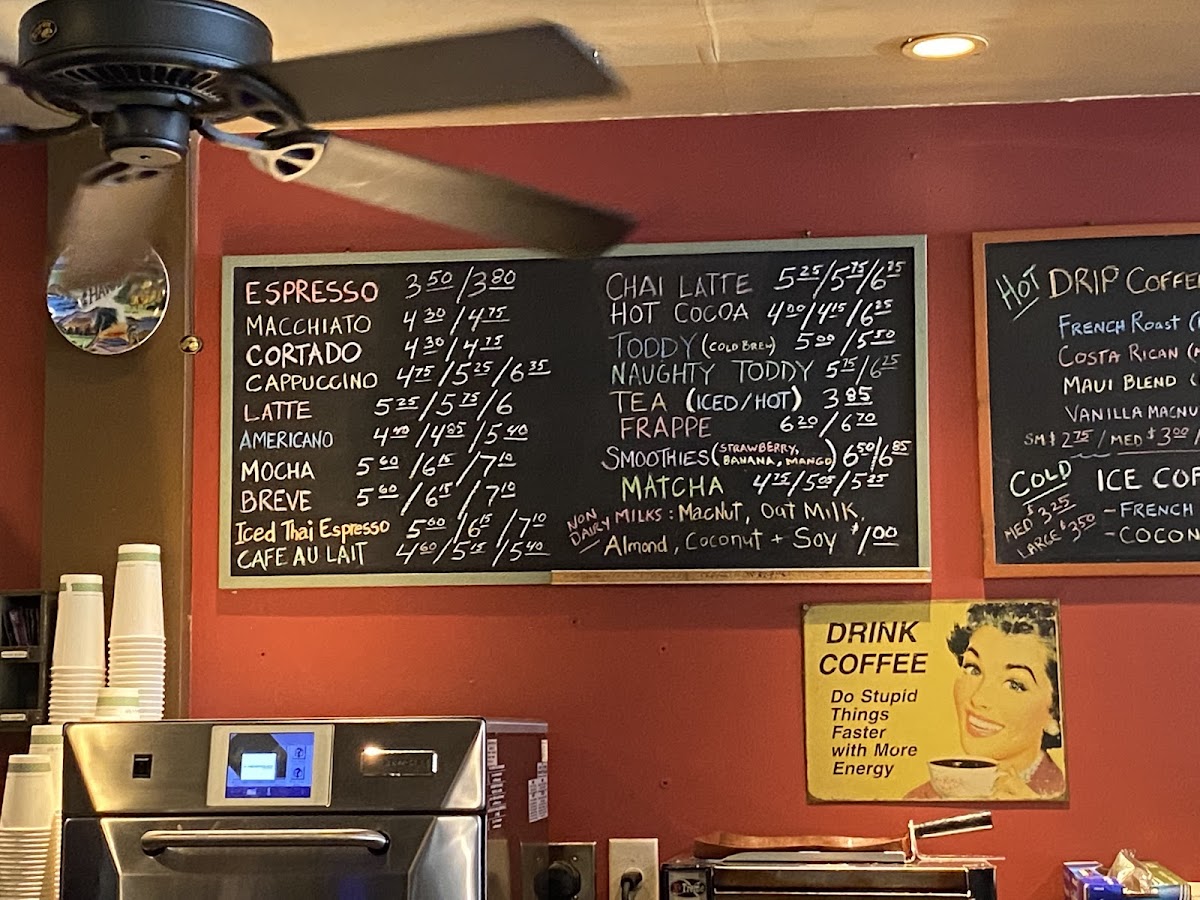 ESPRESSO 3.50/3.80
MACCHIATO 4.30/4.75
CORTADO 4.30/4.75
CAPPUCCINO 4.75/5.25/6.35
LATTE 5.25/5.75/6
AMERICANO 4.40/4.85/5.40
MOCHA 5.60/6.15/7.10
BREVE 5.60/6.15/7.10
Iced Thai Espresso 5.60/6.15/7.10
CAFE AU LAIT 4.60/5.15/5.40
CHAI LATTE 5.25/5.75/6.25
HOT COCOA 4.00/4.15/6.25
TODDY (COLD BREW) 5.00/5.50
NAUGHTY TODDY 5.75/6.25
TEA (ICED/HOT) 3.85
FRAPPE 6.20/6.70
SMOOTHIES (STRAWBERRY, BANANA, MANGO) 6.50/6.85
MATCHA 4.75/5.05/5.25
NON DAIRY MILKS: MacNut, Oat Milk,
Almond, Coconut + Soy $1.00
HOT DRIP COFFEE
FRENCH ROAST
COSTA RICAN
MAUI BLEND
VANILLA MACNU
SM $2.75 / MED $3.00 /
COLD ICE COF
MED $3.25 - FRENCH
LARGE $3.50 - COCON
DRINK
COFFEE
Do Stupid
Things
Faster
with More
Energy